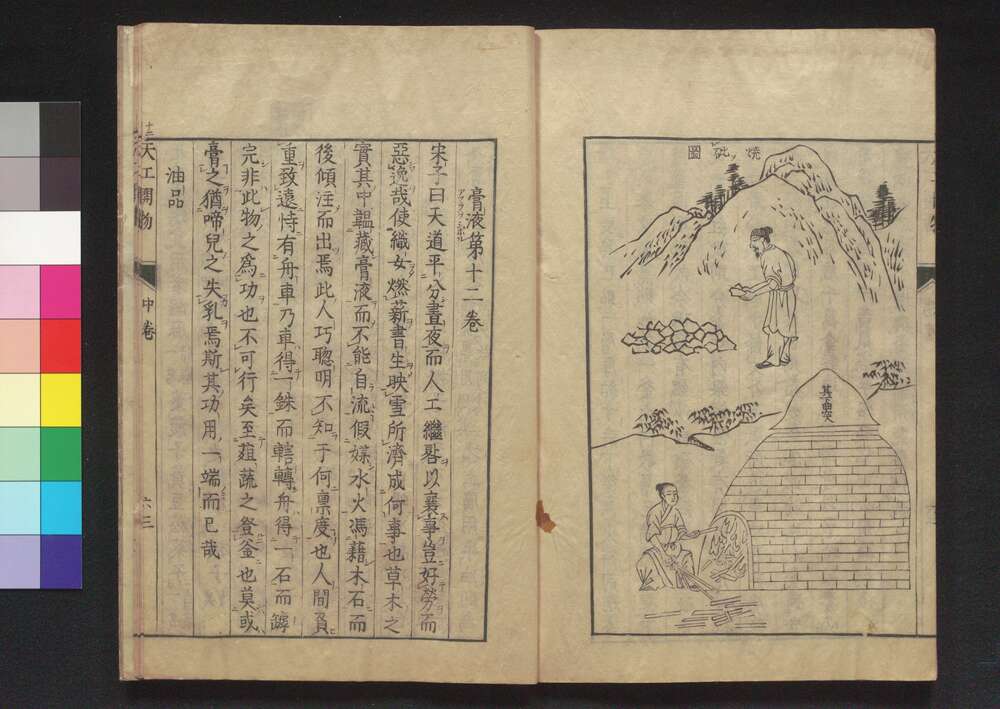 燒砒圖
其下曲突
膏液第十二卷
宋子曰天道平分晝夜而人工繼晷以襄事豈好勞而
惡逸哉使織女燃薪書生映雪所濟成何事也草木之
實其中韞藏膏液而不能自流假媒水火馮藉木石而
後傾注而出焉此人巧聰明不知于何稟度也人間負
重致遠恃有舟車乃車得一銖而轄轉舟得一石而罅
完非此物之爲功也不可行矣至菹蔬之登釜也莫或
膏之猶啼兒之失乳焉斯其功用一端而已哉
油品
天工開物 中卷 六三